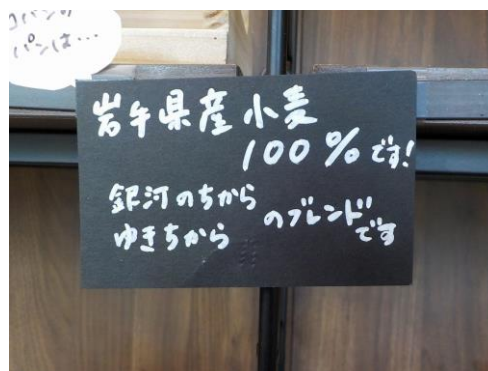 パンは…
岩手県産小麦
100%です!
銀河のちから
ゆきちから
のブレンド
です